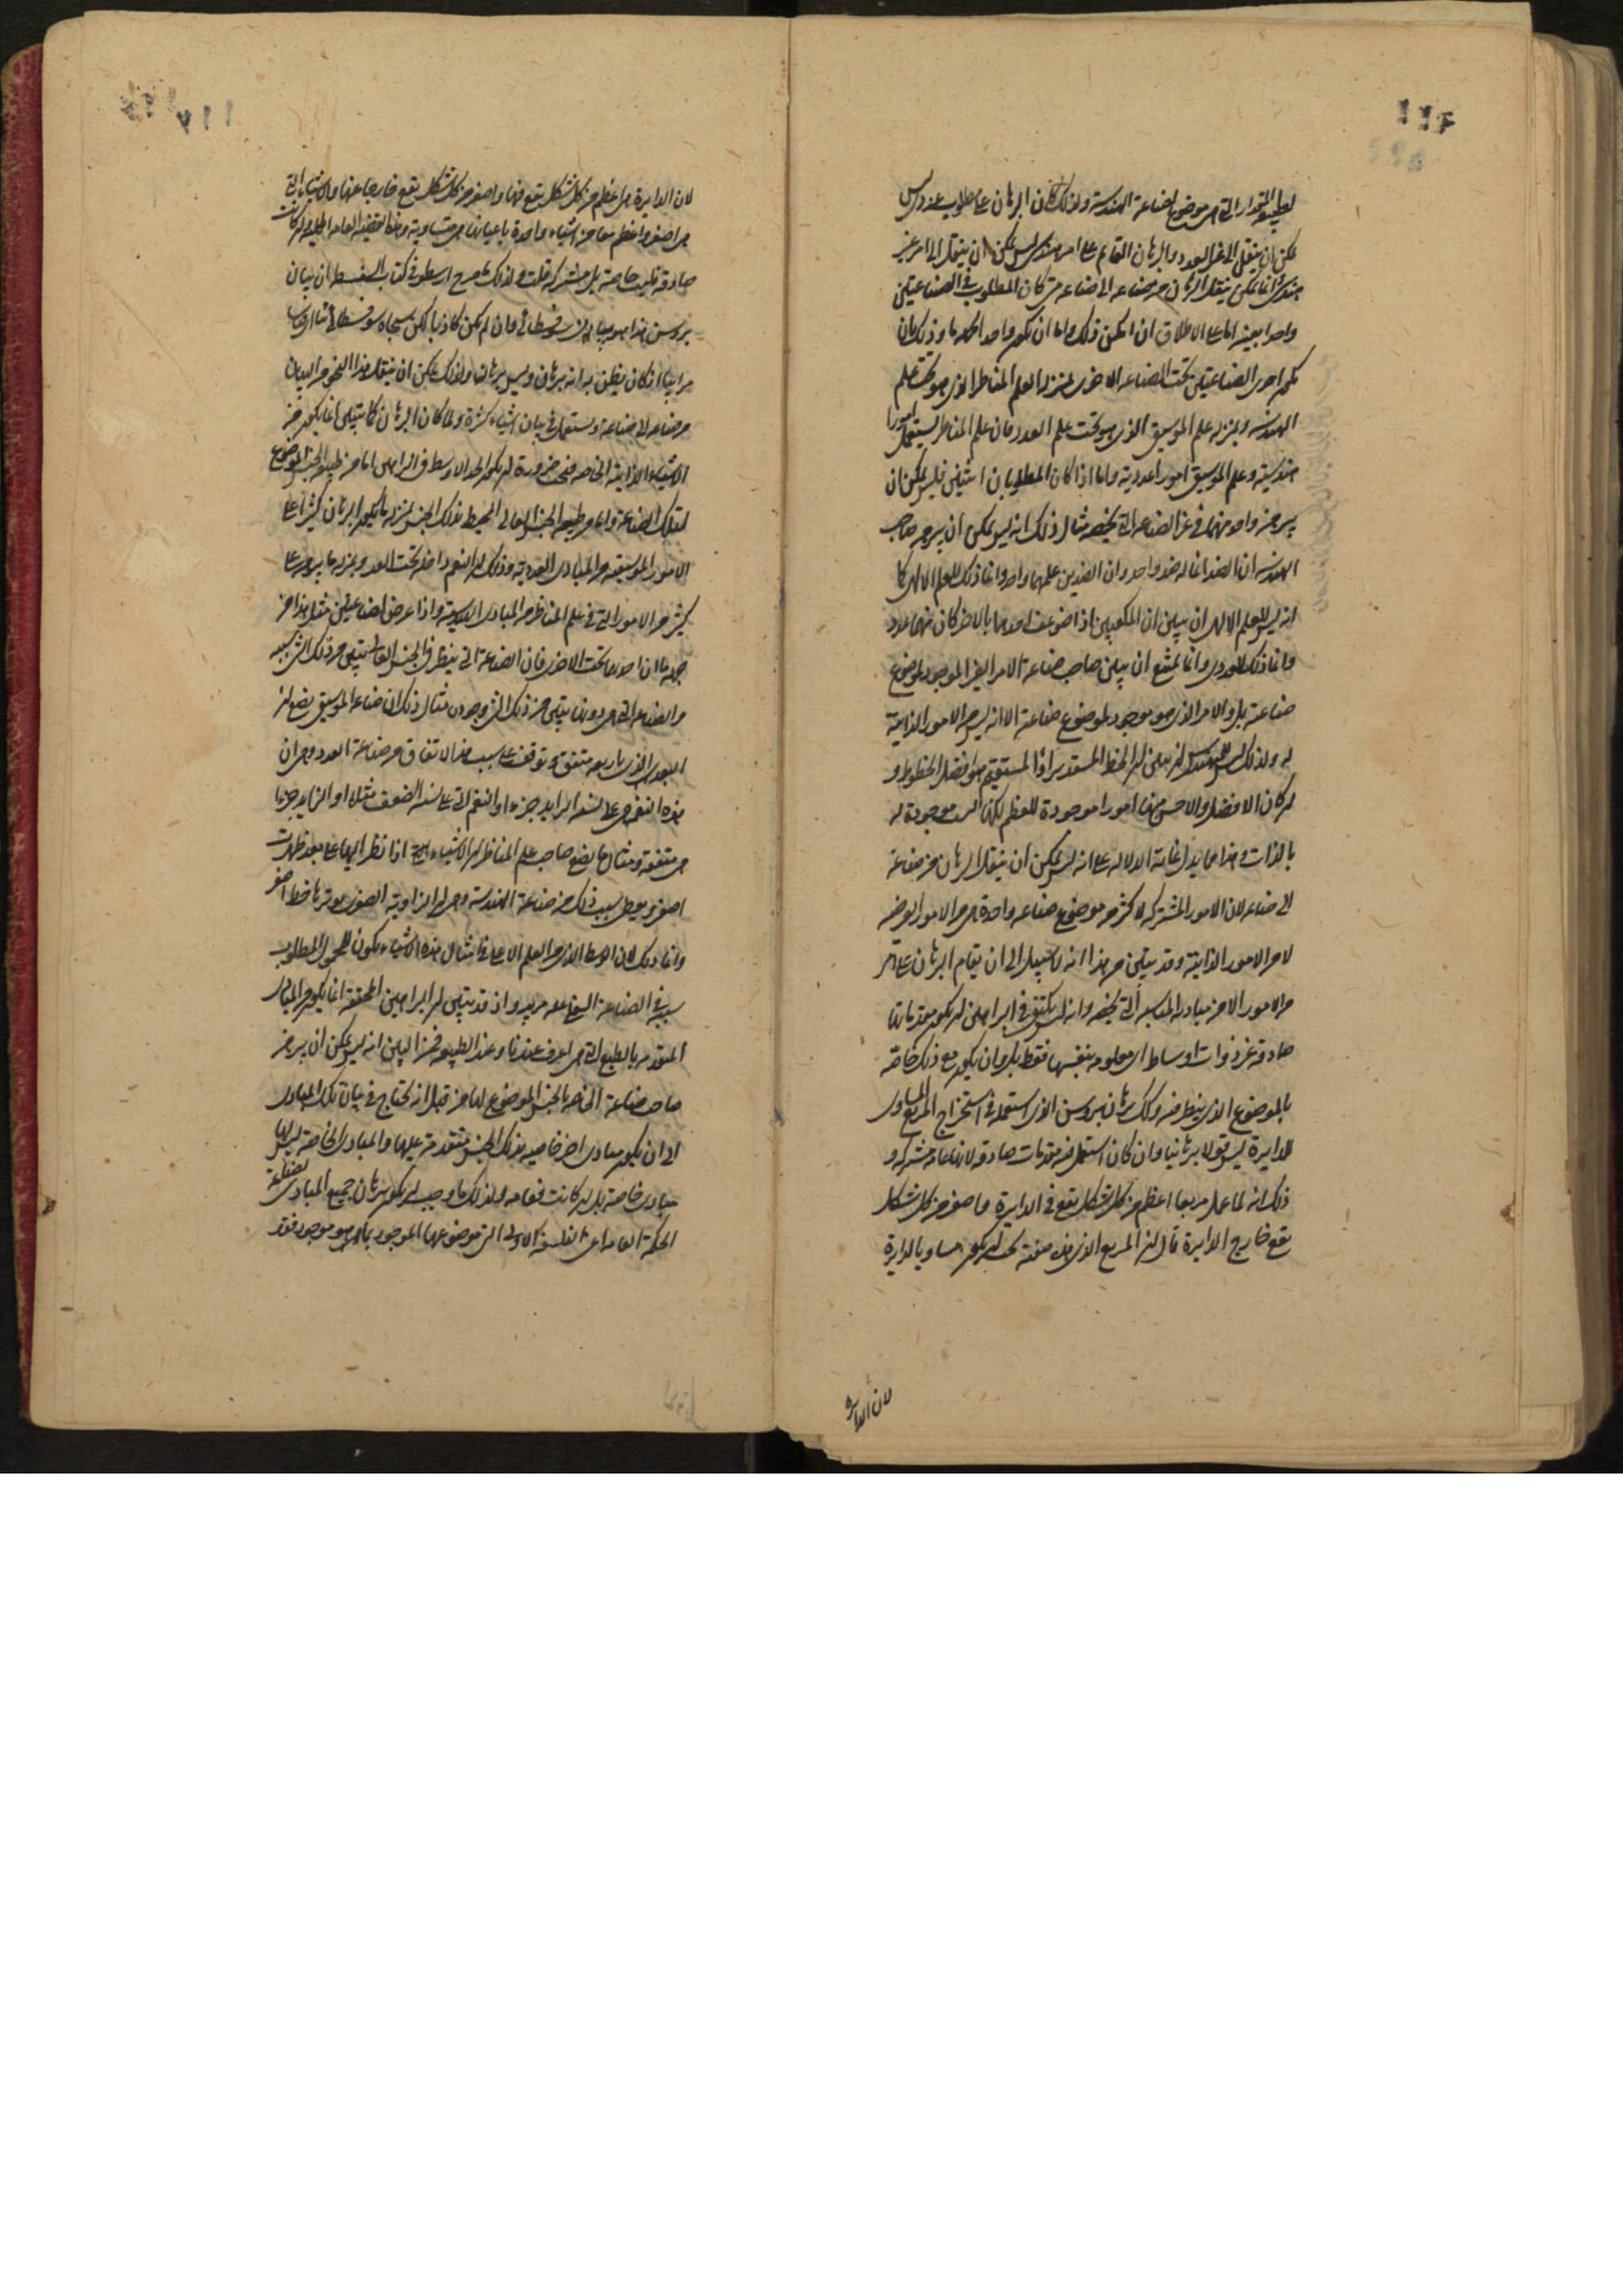 ١١٦
لطبيعة المقدار التي هي موضوع لصناعة الهندسة ولذلك كان البرهان على مطلوب عددي ليس
يمكن ان ينقل الى غير العدد والبرهان القايم على امر هندسي ليس يمكن ان ينقل الى امر غير
هندسي وانما يمكن ينقل البرهان من صناعه الى صناعه متى كان المطلوب في الصناعتين
واحدا بعينه اما على الاطلاق ان امكن ذلك واما ان يكون واحدا بجهة ما وذلك بان
يكون احدى الصناعتين تحت الصناعه الاخرى بمنزله العلم المناظر الذي هو تحت علم
الهندسه وبمنزله علم الموسيقى الذي هو تحت علم العدد فان علم المناظر يستعمل امورا
هندسية وعلم الموسيقى امورا عددية واما اذا كان المطلوبان اثنين فليس يمكن ان
يبرهن واحد منهما في غير الصناعه التي تخصه مثال ذلك انه ليس يمكن ان يبرهن صاحب
الهندسه ان الضد انما له ضد واحد وان الضدين علمهما واحد وانما ذلك للعلم الالهي كما
انه ليس للعلم الالهي ان يبين ان المكعبين اذا ضوعف احدهما بالاخر كان منهما عدد
وانما ذلك للعددي وانما يمتنع ان يبين صاحب صناعة الامر الغير الموجود لموضوع
صناعته بل والامر الذي هو موجود لموضوع صناعته الا انه ليس من الامور الذاتية
له ولذلك ليس للمهندس ان يبين ان الخط المستدير او المستقيم هو افضل الخطوط و
ان كان الافضل والاحسن منها امورا موجودة للعظم لكنها ليست موجودة له
بالذات وهذا مما يدل غاية الدلاله على انه ليس يمكن ان ينقل البرهان من صناعة
الى صناعه لان الامور المشتركه لاكثر من موضوع صناعه واحدة هي من الامور العرضيه
لا من الامور الذاتية وقد يتبين من هذا انه لا سبيل الى ان يقام البرهان على امر
من الامور الا من مباديه المناسبه التي تخصه وانه ليس يكتفي في البراهين ان يكون مقدماتها
صادقة غير ذوات اوساط اي معلومه بنفسها فقط بل وان يكون مع ذلك خاصة
بالموضوع الذي ينظر فيه ولذلك برهان بروسن الذي استعمله في استخراج المربع المساوى
للدايرة ليس قولا برهانيا وان كان استعمل فيه مقدمات صادقة لانها عامه مشتركه و
ذلك انه لما عمل مربعا اعظم من كل شكل يقع في الدايرة واصغر من كل شكل
يقع خارج الدايرة قال ان المربع الذي هذه صفته يجب ان يكون مساويا للدايرة
لان الدايرة
١١٧
لان الدايرة هي اعظم من كل شكل يقع فيها واصغر من كل شكل يقع خارجا عنها والاشياء التي
هي اصغر واعظم معا من اشياء واحدة باعيانها هي متساوية وهذه القضيه العامه الجليه وان كانت
صادقه فليست خاصة بل مشتركه قلت ولذلك ما صرح ارسطو في كتاب السفسطه ان بيان
بروسن هذا هو بيان سوفسطائى وان لم يكن كاذبا لكن سماه سوفسطائى
مرايا اذ كان يظن به انه برهان وليس برهانا ولذلك يمكن ان ينقل هذا النحو من البيان
من صناعه الى صناعة ويستعمل في بيان اشياء كثرة ولما كان البرهان كما تبين انما يكون من
الاشياء الذاتية الخاصه فمن ضرورة ان يكون الحد الاوسط في البراهين اما من طبيعة الجنس الموضوع
لتلك الصناعة واما من طبيعة الجنس العالى المحيط بذلك الجنس بمنزله ما يكون البرهان كثيرا على
الامور الموسيقيه من المبادى العددية وذلك ان النغم داخله تحت العدد وبمنزله ما يبرهن على
كثير من الامور التي في علم المناظر من المبادى الهندسية واذا عرض لصناعتين مثل هذا من
جهة ان احداهما تحت الاخرى فان الصناعة التى ينظر في الجنس العالى يتبين من ذلك الشى سببه
والصناعه التى هي دونها يتبين من ذلك الشى وجوده مثال ذلك ان صناعه الموسيقى يضع ان
البعد الذى باربعه متفق وتوقف على سبب هذا الاتفاق من صناعة العدد وهي ان
هذه النغم هي على نسبه الزايد جزءا او النغم التى على نسبه الضعف مثله او الزايد جزءا
هي متفقة ومثال ما يضع صاحب علم المناظر ان الاشياء التى اذا نظر اليها على بعد ظهرت
اصغر ويعطى سبب ذلك من صناعة الهندسة وهي ان الزاوية الصغرى يوترها خط اصغر
وانما ذلك لان الوسط الذى من العلم الاعلى في امثال هذه الاشياء يكون للمحمول المطلوب
سببه في الصناعة السفلى وان قد يتبين ان البراهين المحققة انما يكون من المبادى
المتقدمه بالطبع التى هي اعرف عندنا وعند الطبيعه فمن البين انه ليس يمكن ان يبرهن
صاحب صناعة الخاصه بالجنس الموضوع لها من قبل انه يحتاج في بيان تلك المبادى
الى ان يكون مبادى اخر خاصيه بذلك الجنس متقدمة عليها والمبادى الخاصة ليس لها
مبادى خاصة بل ان كانت فعامه ولذلك ما وجب ان يكون برهان جميع المبادى لصناعة
الحكمة العامه اى الفلسفه الاولى التى موضوعها الموجود بما هو موجود فقد